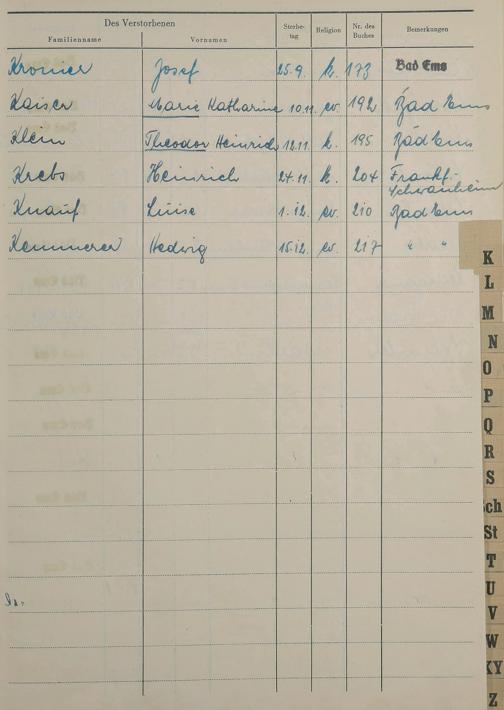 Des Verstorbenen
Familienname Vornamen Sterbe-tag Religion Nr. des Buches Bemerkungen
Kromer Josef 25.9. k. 173 Bad Ems
Kaiser Marie Katharine 10.11. ev. 192 Bad Ems
Klein Theodor Heinrich 12.11. k. 195 Bad Ems
Krebs Heinrich 24.11. k. 204 Frankf.-
Schwanheim
Knauf Luise 1.12. ev. 210 Bad Ems
Kemmerer Hedwig 15.12. ev. 217 " "
K
L
M
N
O
P
Q
R
S
Sch
St
T
U
V
W
XY
Z